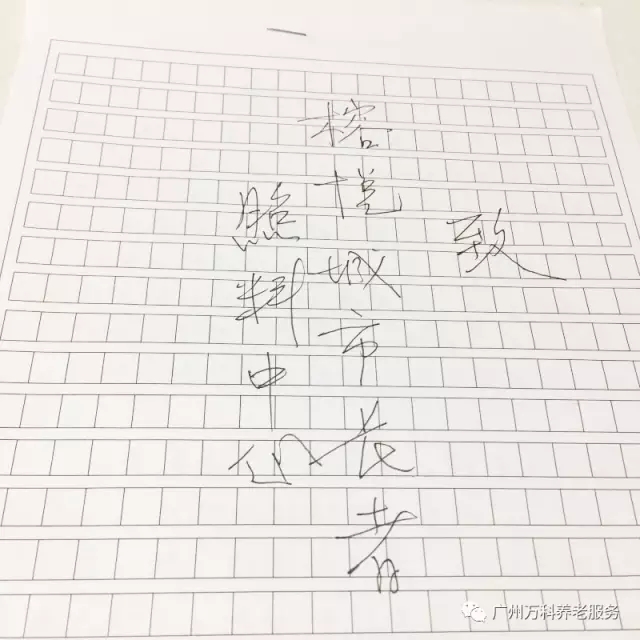 致
榕悦城市长者
照料中心
广州万科养老服务